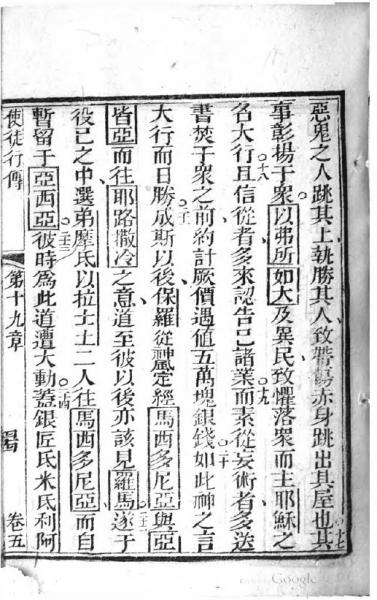 惡鬼之人跳其上執勝其人致帶傷赤身跳出其屋也其
事彰揚于衆以弗所如大及異民致懼落衆而主耶穌之
名大行且信從者多來認告己諸業而素從妄術者多送
書焚于衆之前約計厥價遇值五萬塊銀錢如此神之言
大行而日勝成斯以後保羅從神風定經馬西多尼亞與亞
皆亞而往耶路撒冷之意道至彼以後亦該見羅馬遂于
役己之中選弟摩氏以拉士土二人往馬西多尼亞而自
暫留于亞西亞彼時為此道遭大動蓋銀匠氏米氏利阿
使徒行傳 第十九章 卷五
Google